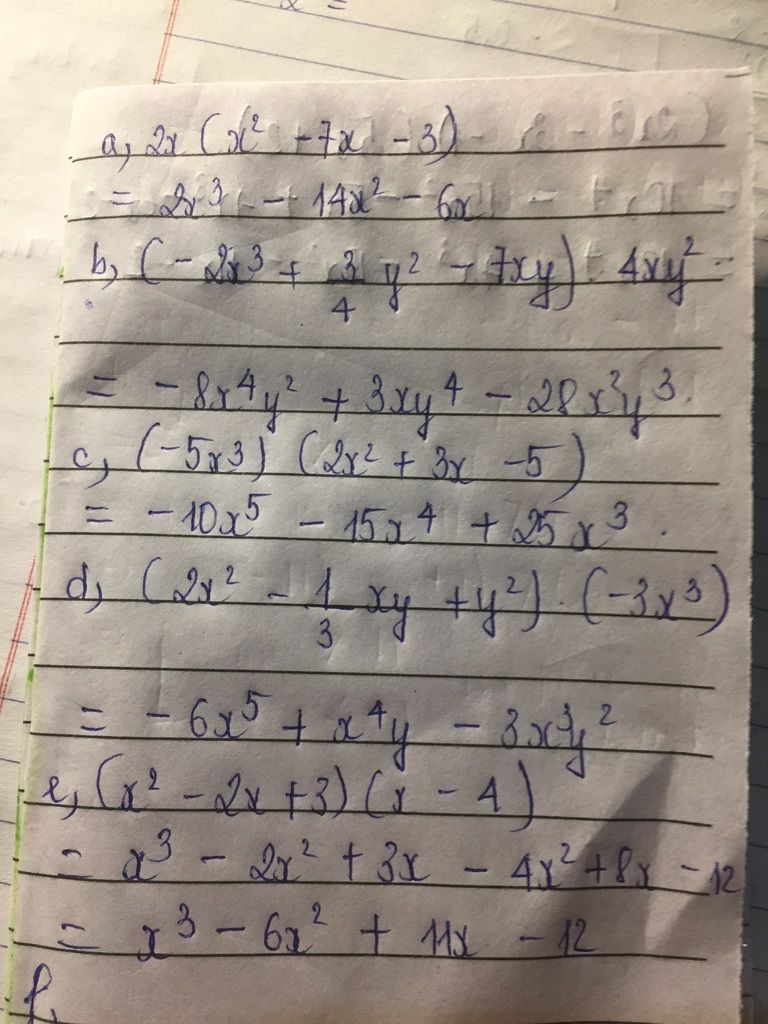 x =
a, 2x (x² - 7x - 3)
= 2x³ - 14x² - 6x
b, (-2x³ + 3/4 y² - 7xy) · 4xy²
= -8x⁴y² + 3xy⁴ - 28x²y³.
c, (-5x³) (2x² + 3x - 5)
= -10x⁵ - 15x⁴ + 25x³.
d, (2x² - 1/3 xy + y²) · (-3x³)
= -6x⁵ + x⁴y - 3x³y²
e, (x² - 2x + 3) (x - 4)
= x³ - 2x² + 3x - 4x² + 8x - 12
= x³ - 6x² + 11x - 12
f,